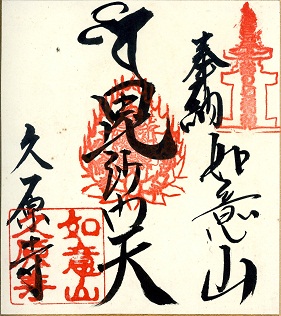 奉納 如意山
毘沙門天
久原寺
如意山
久原寺